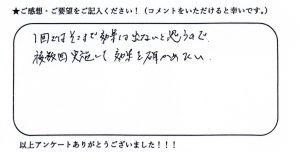 ★ご感想・ご要望をご記入ください！（コメントをいただけると幸いです。）
1回ではそこまで効果は出ないと思うので、
複数回実施して効果を確かめたい。
以上アンケートありがとうございました！！！